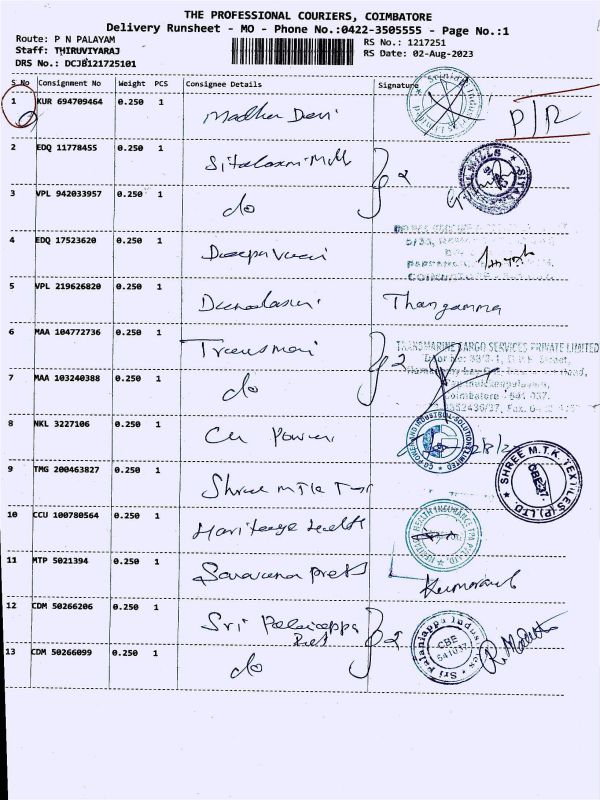 THE PROFESSIONAL COURIERS, COIMBATORE
Delivery Runsheet - MO - Phone No.:0422-3505555 - Page No.:1
Route: P N PALAYAM
RS No.: 1217251
Staff: THIRUVIYARAJ
RS Date: 02-Aug-2023
DRS No.: DCJB121725101
S No Consignment No Weight PCS Consignee Details Signature
1 KUR 694709464 0.250 1 Madhu Devi
P/R
2 EDQ 11778455 0.250 1 Sitalaxmi Mill
2
3 VPL 942033957 0.250 1 do
4 EDQ 17523620 0.250 1
5 VPL 219626820 0.250 1 Thangamma
6 MAA 104772736 0.250 1 2
TRANSMARINE CARGO SERVICES PRIVATE LIMITED
7 MAA 103240388 0.250 1 do
Coimbatore - 641 037.
8 NKL 3227106 0.250 1 CG Power
CG POWER AND INDUSTRIAL SOLUTIONS LIMITED
SHREE M.T.K TEXTILES (P) LTD. CBE-37.
9 TMG 200463827 0.250 1 Shree MTK
10 CCU 100780564 0.250 1 Heritage Health
HERITAGE HEALTH INSURANCE TPA PVT. LTD.
11 MTP 5021394 0.250 1 Saravana
12 CDM 50266206 0.250 1 Sri Palaniappa
2
Sri Palaniappa Industries CBE 641037
13 CDM 50266099 0.250 1 do